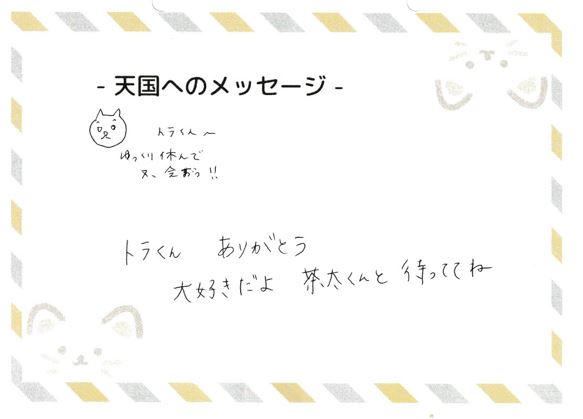 - 天国へのメッセージ -
トラくん〜
ゆっくり休んで
又、会おう!!
トラくん ありがとう
大好きだよ 茶太くんと 待っててね